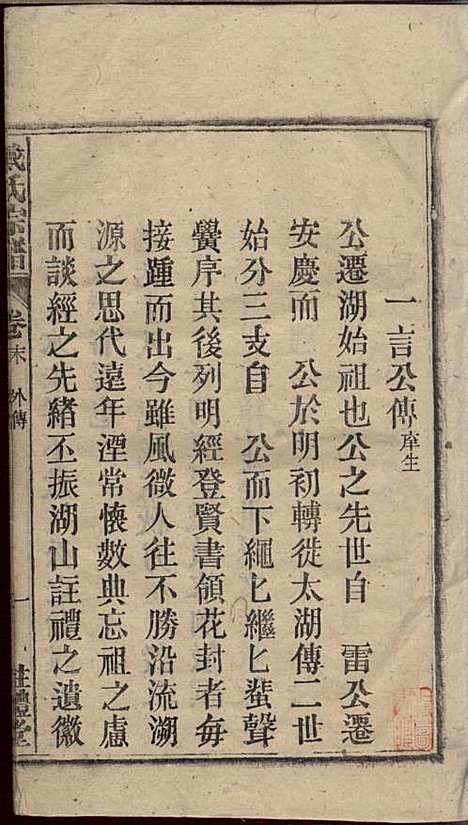 一言公傳庠生
公遷湖始祖也公之先世自 雷公遷
安慶而 公於明初轉徙太湖傳二世
始分三支自 公而下繩匕繼匕蜚聲
黌序其後列明經登賢書領花封者毎
接踵而出今雖風微人往不勝沿流溯
源之思代遠年湮常懷數典忘祖之慮
而談經之先緒丕振湖山註禮之遺徽
戴氏宗譜 卷末 外傳 一 註禮堂